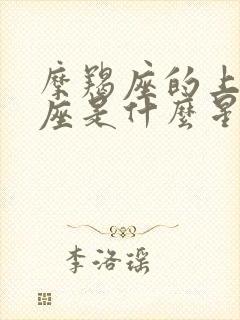 摩羯座的上
座是什麼星
李洛瑶